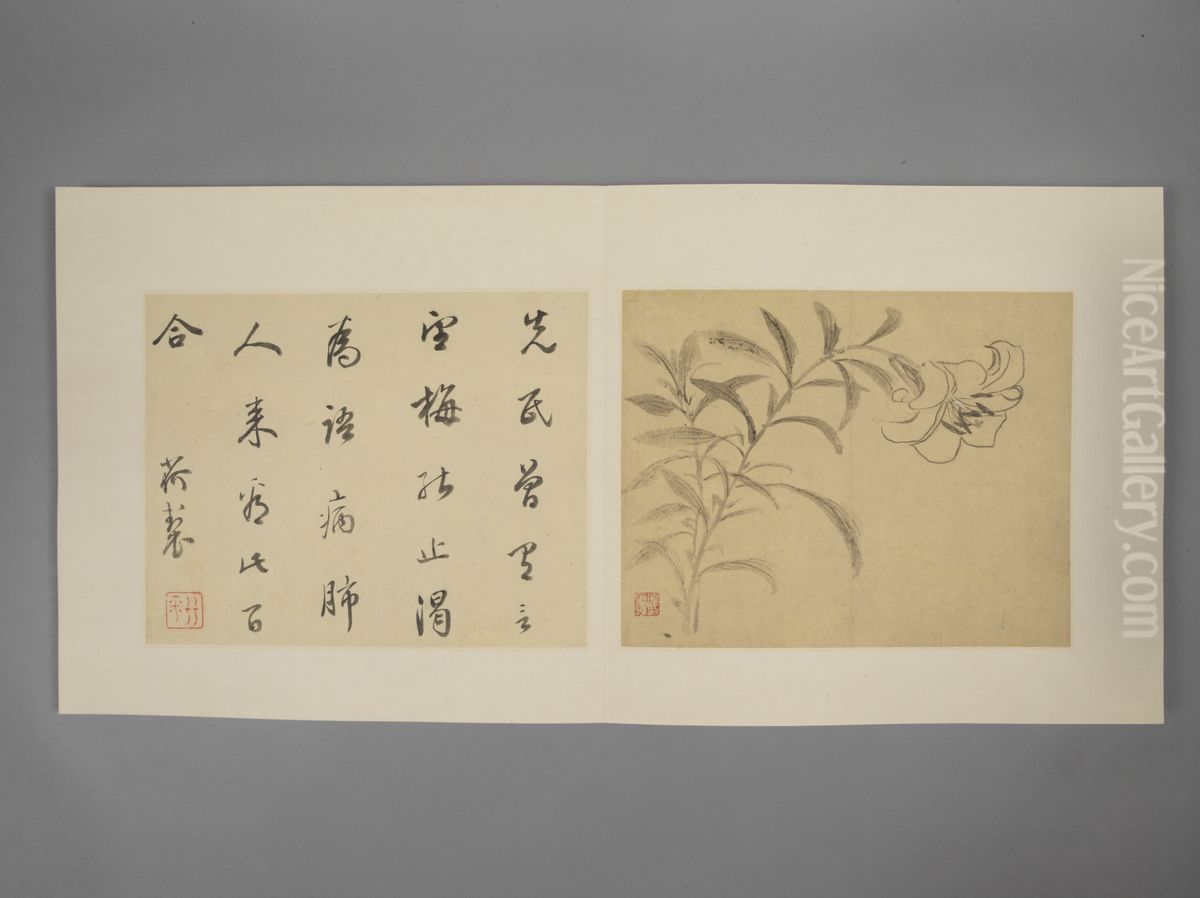 先民曾言
望梅能止渴
為語病肺
人来看此百
合 荷製
NiceArtGallery.com